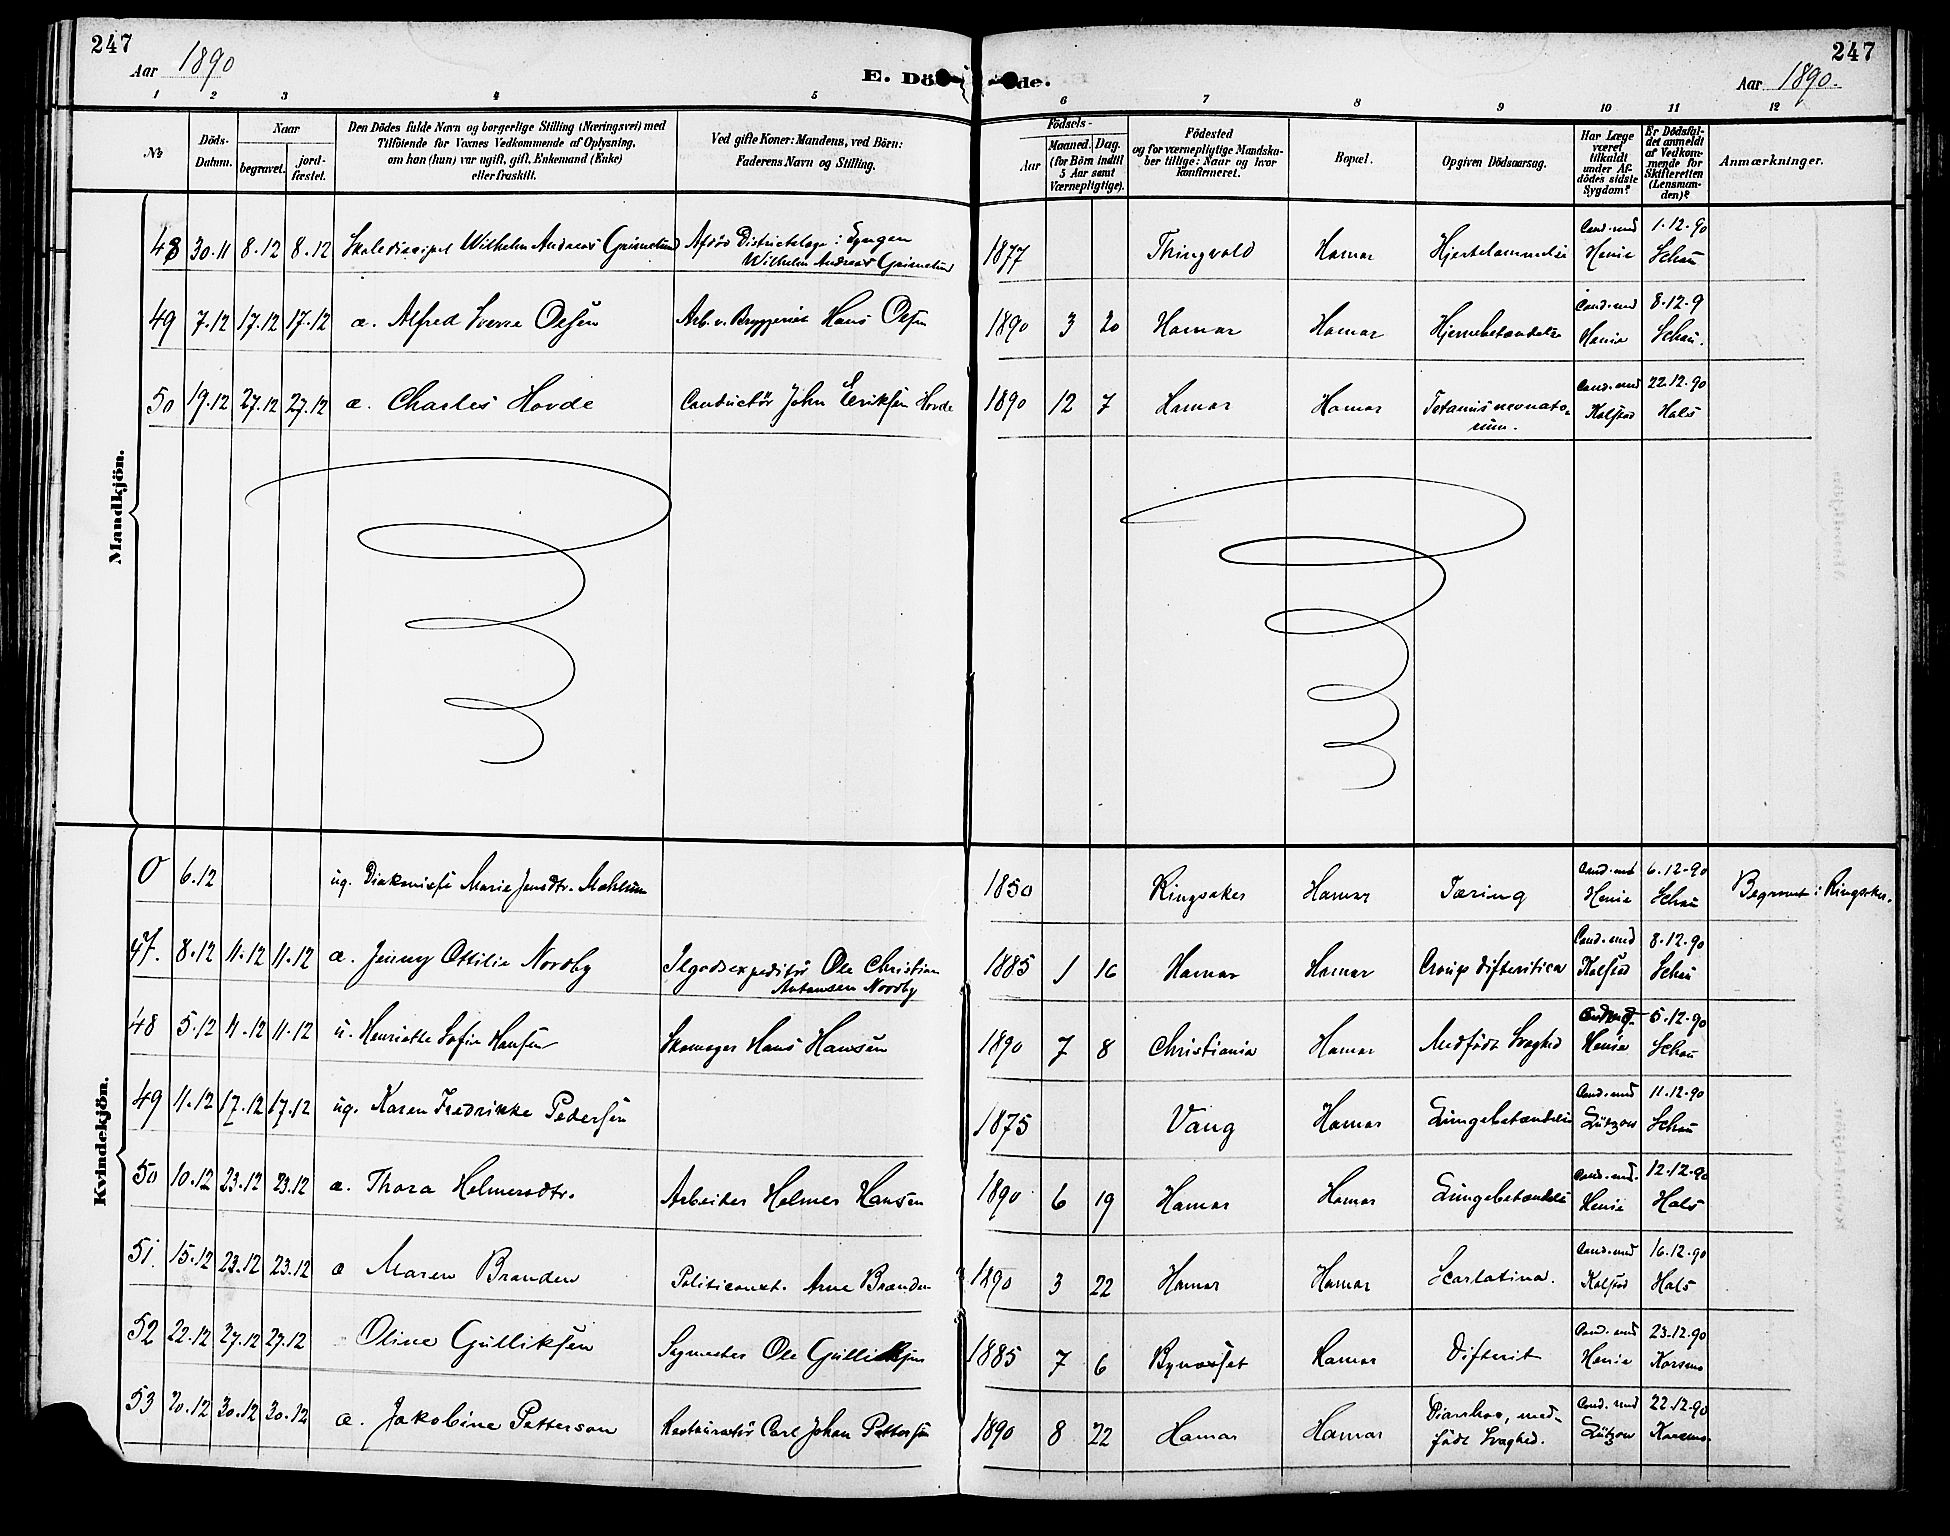 247
Aar 1890
E. Dö de.
247
Aar 1890.
1 2 3 4 5 6 7 8 9 10 11 12
No
Döds-
Datum.
Naar
begravet.
jord-
fæstet.
Den Dödes fulde Navn og borgerlige Stilling (Næringsvei) med
Tilföiende for Voxnes Vedkommende af Oplysning,
om han (hun) var ugift, gift, Enkemand (Enke)
eller fraskilt.
Ved gifte Koner: Mandens, ved Börn:
Faderens Navn og Stilling.
Födsels-
Aar
Maaned. Dag.
(for Börn indtil
5 Aar samt
Værnepligtige).
Födested
og for værnepligtige Mandska-
ber tillige: Naar og hvor
konfirmeret.
Bopæl.
Opgiven Dödsaarsag.
Har Læge
været
tilkaldt
under Af-
dödes sidste
Sygdom?
Er Dödsfal-
det anmeldt
af Vedkom-
mende for
Skifteretten
(Lensman-
den)?
Anmærkninger.
Mandkjön.
48 30.11 8.12 8.12 Skolediscipel Wilhelm Andreas Grimelund Afdød Districtslæge i Lyngen 1877 Thingvold Hamar Hjertelammelse Cand. med 1.12.90
Wilhelm Andreas Grimelund Henie Schou
49 7.12 17.12 17.12 æ. Alfred Sverre Olsen Arb. v. Bryggeriet Hans Olsen 1890 3 20 Hamar Hamar Hjernebetændelse Cand. med 8.12.9
Henie Schou.
50 19.12 27.12 27.12 æ. Charles Hovde Conductør John Eriksen Hovde 1890 12 7 Hamar Hamar Tetanus neonato- Cand. med 22.12.90
rum. Kolstad Hals
Kvindekjön.
0 6.12 ug. Diakonisse Marie Jensdtr. Mæhlum 1850 Ringsaker Hamar Tæring Cand. med 6.12.90 Begravet i Ringsaker.
Henie Schou
47. 8.12 11.12 11.12 æ. Jenny Ottilie Nordby Ilgodsexpeditør Ole Christian 1885 1 16 Hamar Hamar Croup difteritica Cand. med 8.12.90
Antonsen Nordby Kolstad Schou
48 5.12 11.12 11.12 u. Henriette Sofie Hansen Skomager Hans Hansen 1890 7 8 Christiania Hamar Medfödt Svaghed Cand. med. 5.12.90
Henie Schou
49 11.12 17.12 17.12 ug. Karen Fredrikke Pedersen 1875 Vang Hamar Lungebetændelse Cand. med 11.12.90
Lützow Schou
50 10.12 23.12 23.12 æ. Thora Helmersdtr. Arbeider Helmer Hansen 1890 6 19 Hamar Hamar Lungebetændelse Cand. med. 12.12.90
Henie Hals
51. 15.12 23.12 23.12 æ Maren Brænden Politiconst. Arne Brænden 1890 3 22 Hamar Hamar Scarlatina. Cand. med 16.12.90
Kolstad Hals
52 22.12 27.12 27.12 Oline Gulliksen Sagmester Ole Gulliksen 1885 7 6 Bynæsset Hamar Difterit Cand. med 23.12.90
Henie Korsmo
53 20.12 30.12 30.12 æ. Jakobine Petterson Restauratør Carl Johan Petterson 1890 8 22 Hamar Hamar Diarrhoe, med- Cand. med 22.12.90
födt Svaghed. Lützow Korsmo